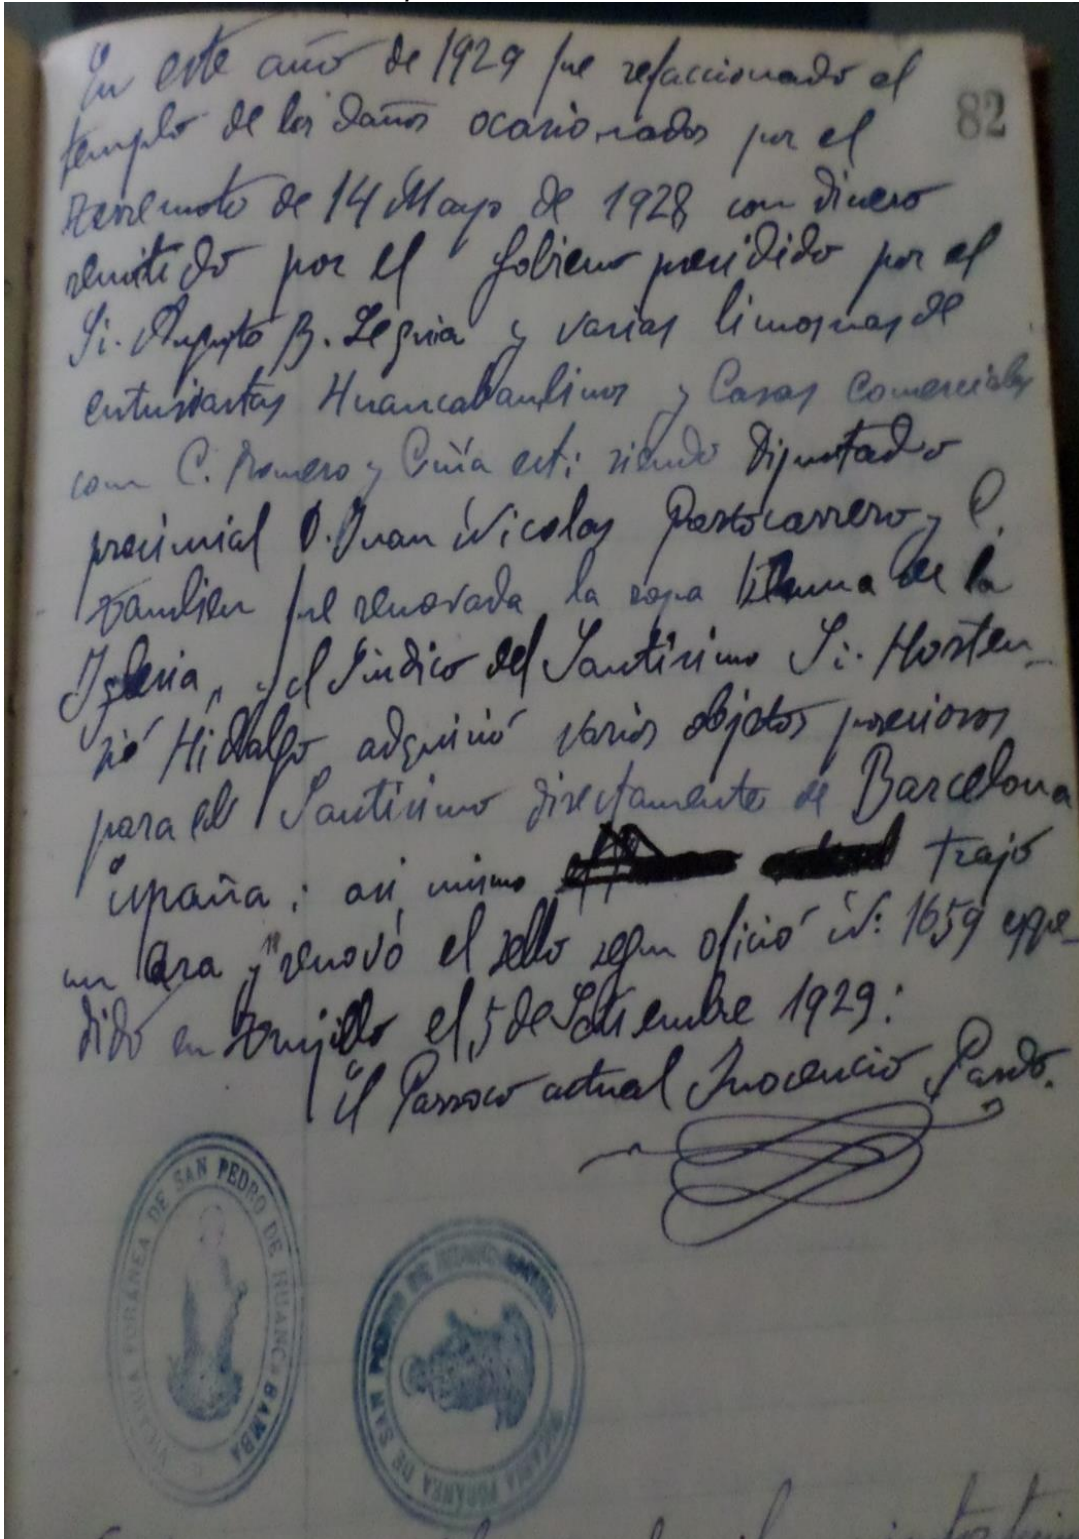 En este año de 1929 fue refaccionado el
82
templo de los daños ocasionados por el
terremoto de 14 Mayo de 1928 con dinero
remitido por el Gobierno presidido por el
Sr. Augusto B. Leguia y varias limosnas de
entusiastas Huancabambinos y Casas Comerciales
como C. Romero y Cñía etc; siendo Diputado
provincial D. Juan Nicolas Portocarrero y C.
tambien fue renovada la ropa de la
Iglesia, y el Sindico del Santísimo Sr. Horten-
sió Hidalgo adquirió varios objetos preciosos
para el Santisimo directamente de Barcelona
España; asi mismo trajo
un Ara y renovó el sello segun ofició N: 1659 espe-
dido en Trujillo el 5 de Setiembre 1929:
El Parroco actual Inocencio Pardo.
VICARIA FORÁNEA DE SAN PEDRO DE HUANCABAMBA
VICARIA FORÁNEA DE SAN PEDRO DE HUANCABAMBA